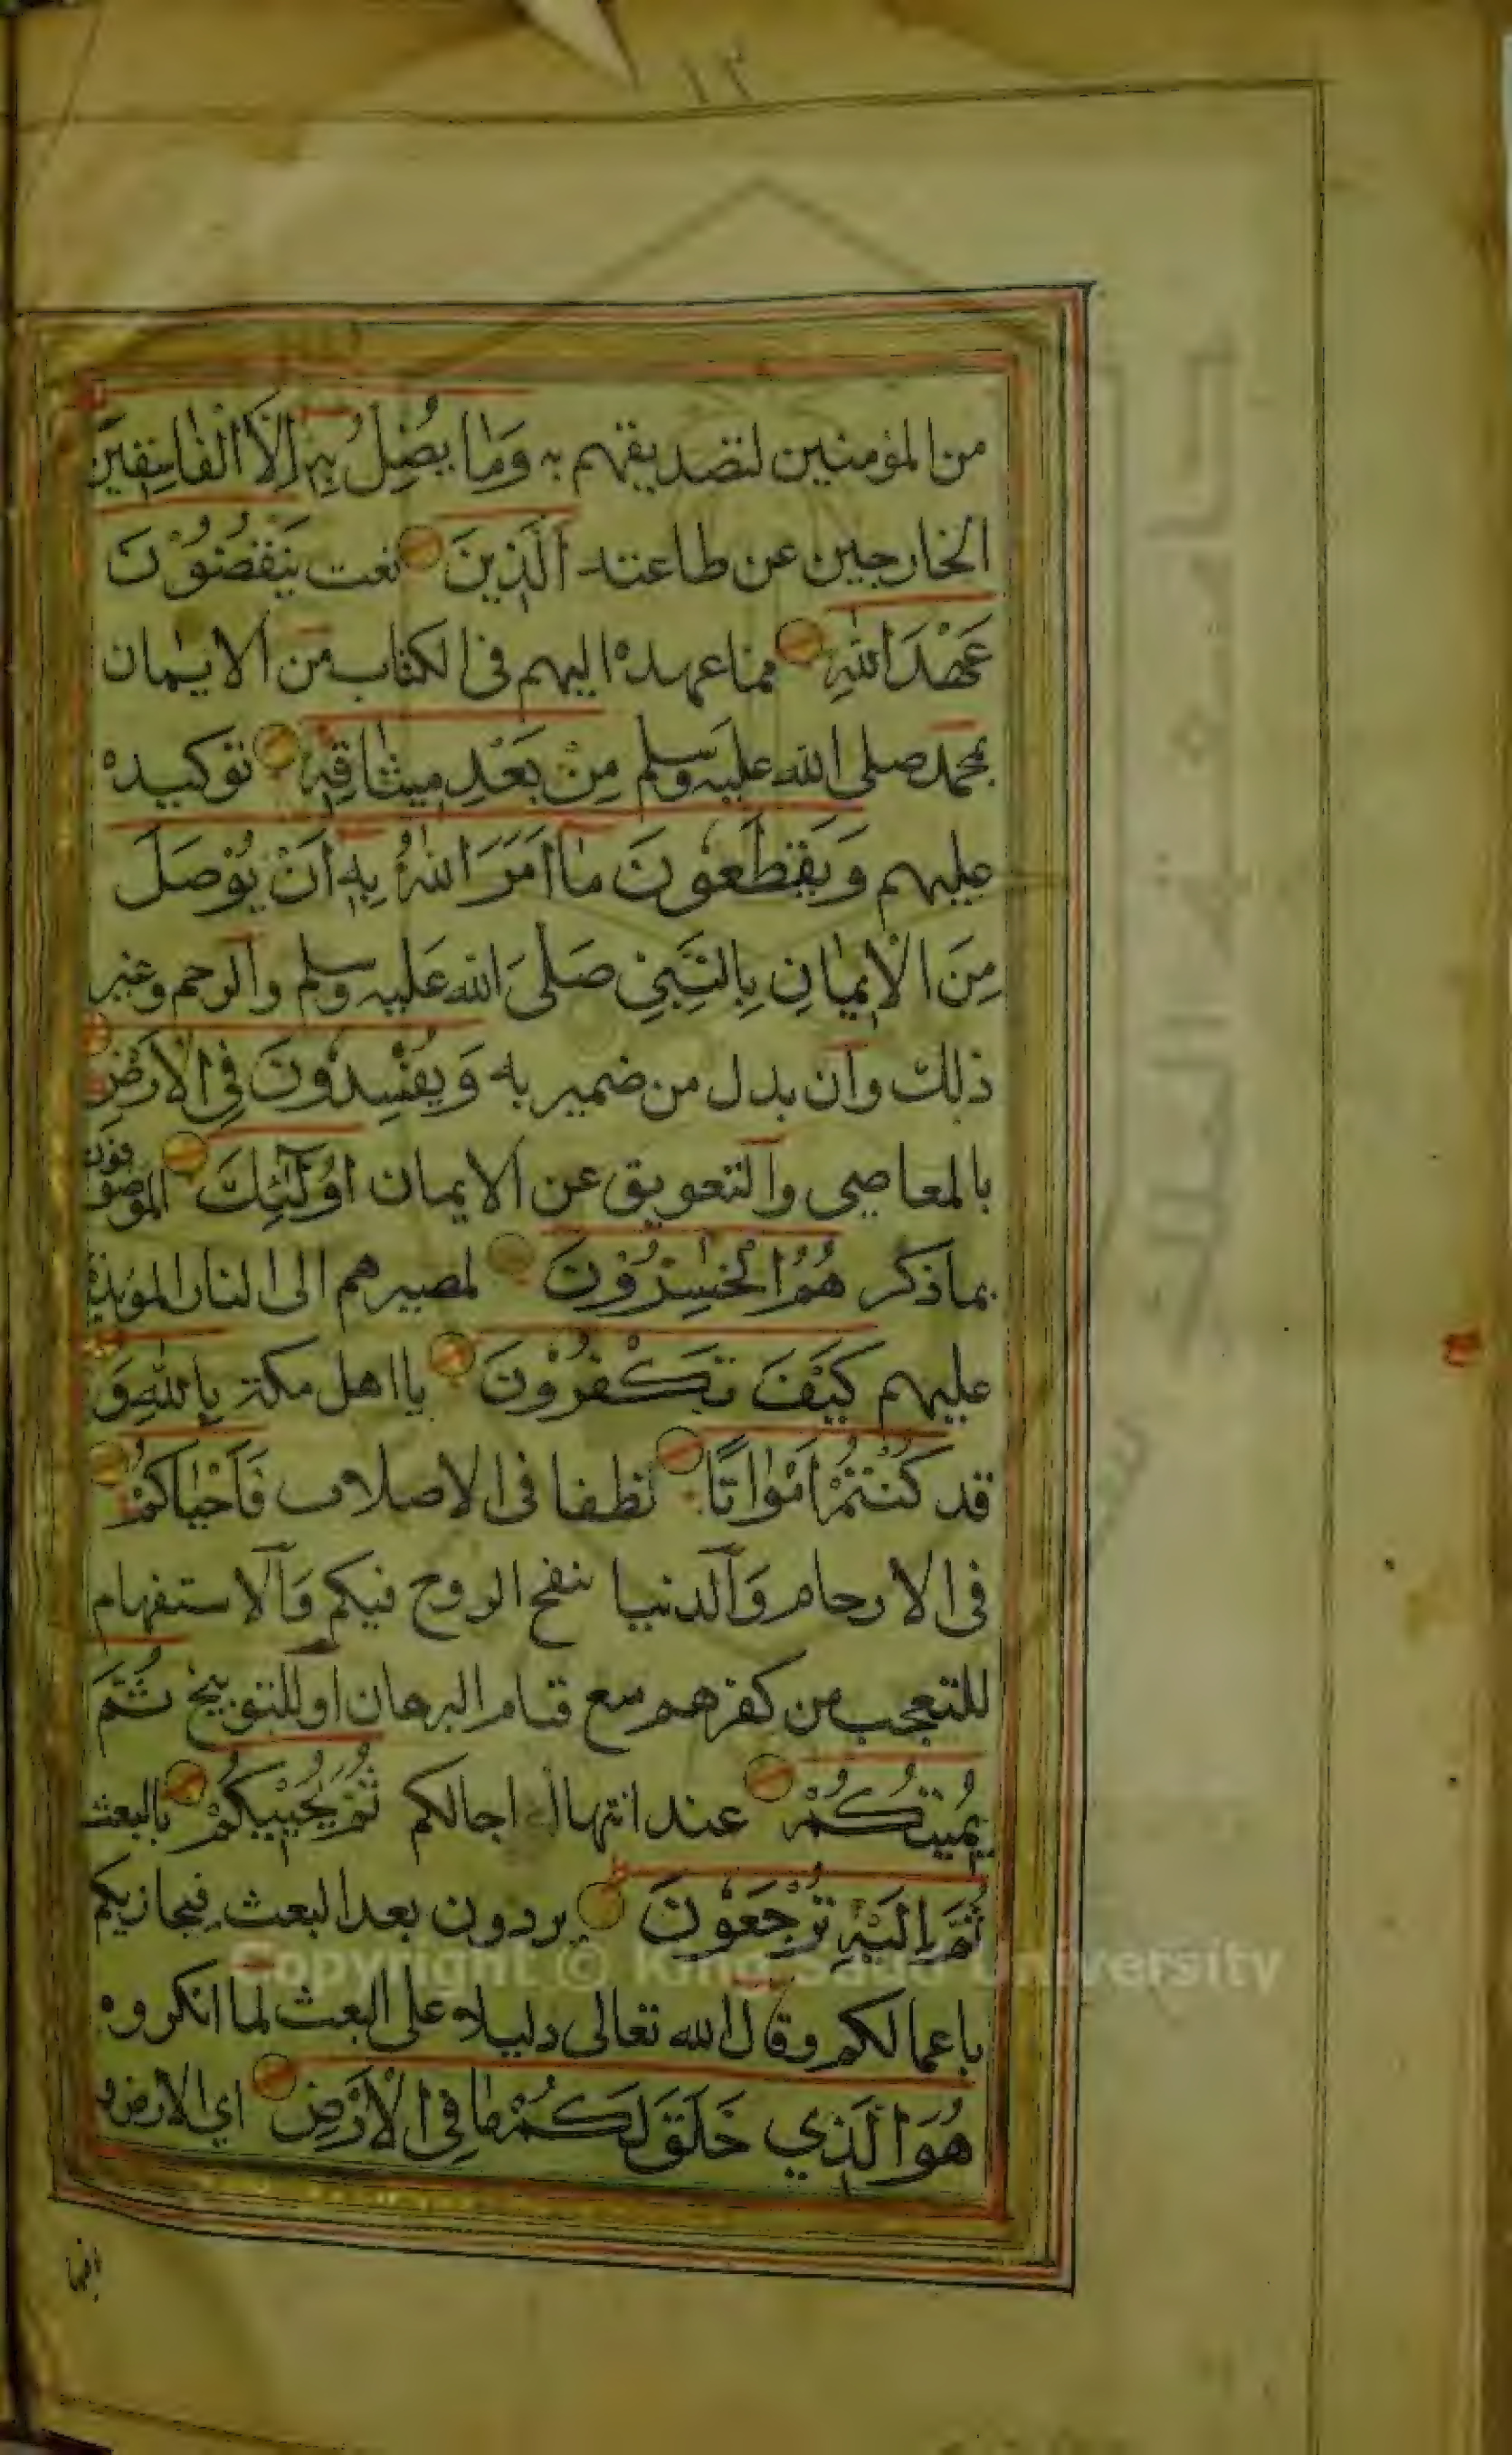 ١٢
من المؤمنين لتصديقهم به وَمَا يُضِلُّ بِهِ إِلَّا الْفَاسِقِينَ
الخارجين عن طاعته الَّذِينَ نعت يَنْقُضُونَ
عَهْدَ اللهِ مما عهده اليهم في الكتاب من الايمان
بمحمد صلى الله عليه وسلم مِنْ بَعْدِ مِيثَاقِهِ توكيده
عليهم وَيَقْطَعُونَ مَا أَمَرَ اللهُ بِهِ أَنْ يُوْصَلَ
مِنَ الْإِيمَانِ بِالنَّبِيِّ صَلَّى الله عَليه وسلم والرحم وغير
ذلك وان بدل من ضمير به وَيُفْسِدُونَ فِي الْأَرْضِ
بالمعاصي والتعويق عن الايمان أُولَٰئِكَ الموصوفون
بما ذكر هُمُ الْخٰسِرُوْنَ لمصيرهم الى النار المؤبدة
عليهم كَيْفَ تَكْفُرُوْنَ يا اهل مكة بِاللهِ وَ
قد كُنْتُمْ أَمْوَاتًا نطفا في الاصلاب فَأَحْيَاكُمْ
في الارحام وَالدنيا بنفخ الروح فيكم وَالاستفهام
للتعجب من كفرهم مع قيام البرهان او للتوبيخ ثُمَّ
يُمِيتُكُمْ عند انتهاء اجالكم ثُمَّ يُحْيِيكُمْ بالبعث
ثُمَّ إِلَيْهِ تُرْجَعُوْنَ يردون بعد البعث فيجازيكم
باعمالكم وقال الله تعالى دليلا على البعث لما انكروه
هُوَ الَّذِي خَلَقَ لَكُمْ مَا فِي الْأَرْضِ اي الارض و
Copyright © King Saud University